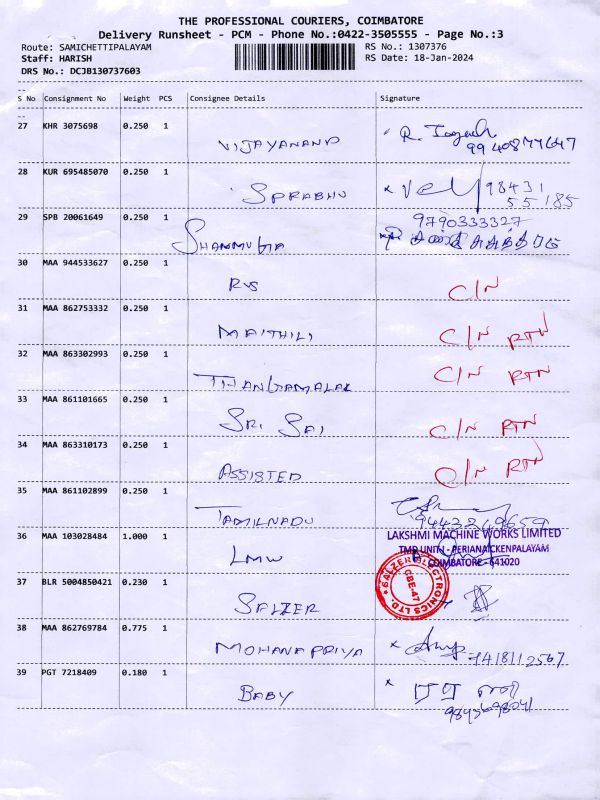 THE PROFESSIONAL COURIERS, COIMBATORE
Delivery Runsheet - PCM - Phone No.:0422-3505555 - Page No.:3
Route: SAMICHETTIPALAYAM RS No.: 1307376
Staff: HARISH RS Date: 18-Jan-2024
DRS No.: DCJB130737603
S No Consignment No Weight PCS Consignee Details Signature
27 KHR 3075698 0.250 1 VIJAYANAND
28 KUR 695485070 0.250 1 SPRABHU 98431
55185
29 SPB 20061649 0.250 1 SHANMUGA 9790333327
30 MAA 944533627 0.250 1 RVS C/N
31 MAA 862753332 0.250 1 MAITHILI C/N RTN
32 MAA 863302993 0.250 1 THANGAMALAR C/N RTN
33 MAA 861101665 0.250 1 SRI SAI C/N RTN
34 MAA 863310173 0.250 1 ASSISTED C/N RTN
35 MAA 861102899 0.250 1 TAMILNADU 9443249659
36 MAA 103028484 1.000 1 LMW LAKSHMI MACHINE WORKS LIMITED
TMD UNIT I - PERIANAICKENPALAYAM
COIMBATORE - 641020
37 BLR 5004850421 0.230 1 SALZER SALZER ELECTRONICS LTD.
CBE-47
38 MAA 862769784 0.775 1 MOHANAPRIYA
39 PGT 7218409 0.180 1 BABY